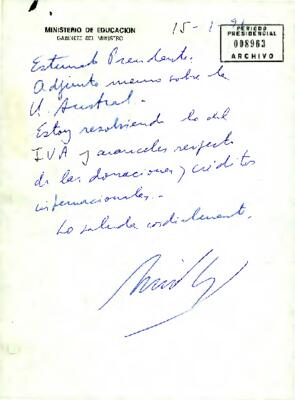 MINISTERIO DE EDUCACION
GABINETE DEL MINISTRO
15-1-91
PERIODO
PRESIDENCIAL
008963
ARCHIVO
Estimado Presidente.
Adjunto memo sobre la
U. Austral.
Estoy resolviendo lo del
IVA y aranceles respecto
de las donaciones y créditos
internacionales.
Lo saluda cordialmente.